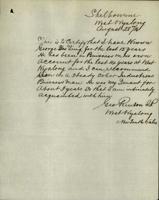 Shelbourne
West Wyalong
August 25th
This is to Certify that I have Known
George Din Ling for the last 12 years
He has been in Business on his own
account for the last 10 years at West
Wyalong and I can recommend
him as a Steady Sober Industrious
Business man. He was my Tenant for
about 7 years so that I am intimately
acquainted with him
West Wyalong
New South Wales